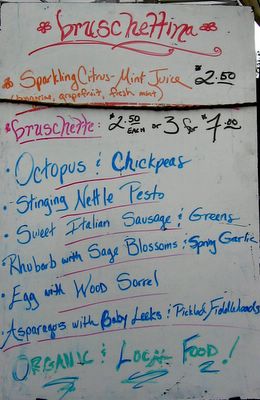 bruschettina
Sparkling Citrus-Mint Juice $2.50
(tangerine, grapefruit, fresh mint)
bruschette: $2.50 EACH or 3 for $7.00
• Octopus & Chickpeas
• Stinging Nettle Pesto
• Sweet Italian Sausage & Greens
• Rhubarb with Sage Blossoms & Spring Garlic
• Egg with Wood Sorrel
• Asparagus with Baby Leeks & Pickled Fiddleheads
ORGANIC & LOCAL FOOD!